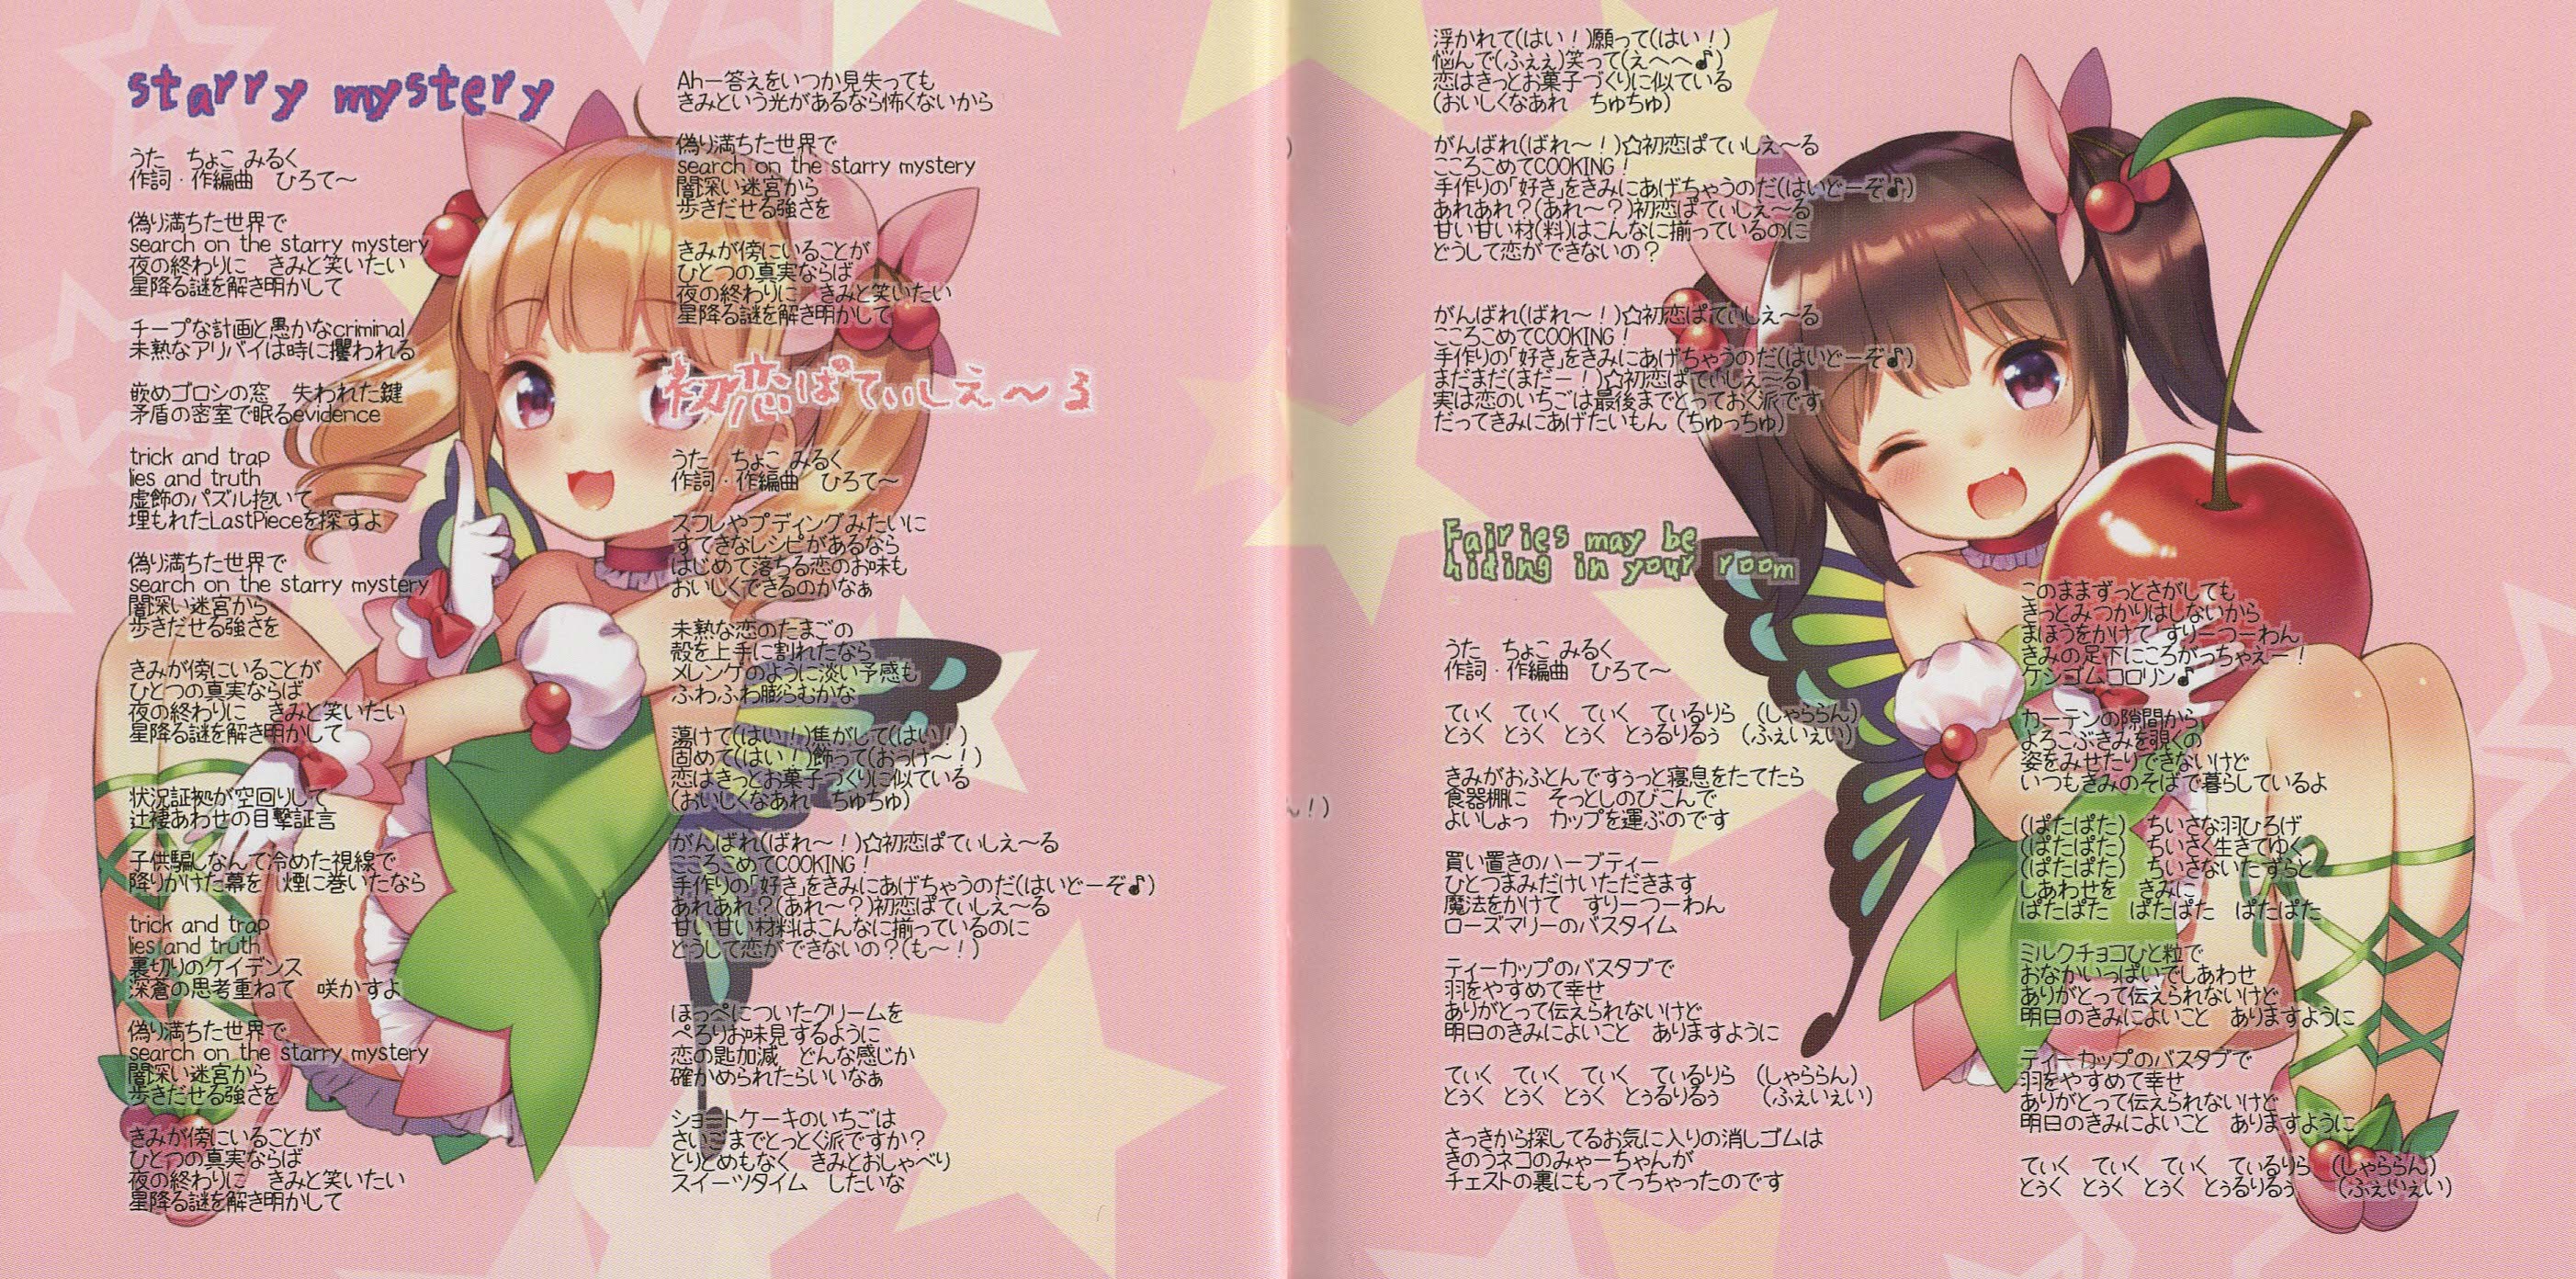 starry mystery
うた　ちょこ みるく
作詞・作編曲　ひろて～
偽り満ちた世界で
search on the starry mystery
夜の終わりに　きみと笑いたい
星降る謎を解き明かして
チープな計画と愚かなcriminal
未熟なアリバイは時に攫われる
嵌めゴロシの窓　失われた鍵
矛盾の密室で眠るevidence
trick and trap
lies and truth
虚飾のパズル抱いて
埋もれたLastPieceを探すよ
偽り満ちた世界で
search on the starry mystery
闇深い迷宮から
歩きだせる強さを
きみが傍にいることが
ひとつの真実ならば
夜の終わりに　きみと笑いたい
星降る謎を解き明かして
状況証拠が空回りして
辻褄あわせの目撃証言
子供騙しなんて冷めた視線で
降りかけた幕を　煙に巻いたなら
trick and trap
lies and truth
裏切りのケイデンス
深蒼の思考重ねて　咲かすよ
偽り満ちた世界で
search on the starry mystery
闇深い迷宮から
歩きだせる強さを
きみが傍にいることが
ひとつの真実ならば
夜の終わりに　きみと笑いたい
星降る謎を解き明かして
Ah―答えをいつか見失っても
きみという光があるなら怖くないから
偽り満ちた世界で
search on the starry mystery
闇深い迷宮から
歩きだせる強さを
きみが傍にいることが
ひとつの真実ならば
夜の終わりに　きみと笑いたい
星降る謎を解き明かして
初恋ぱてぃしえ～る
うた　ちょこ みるく
作詞・作編曲　ひろて～
スフレやプディングみたいに
すてきなレシピがあるなら
はじめて落ちる恋のお味も
おいしくできるのかなぁ
未熟な恋のたまごの
殻を上手に割れたなら
メレンゲのように淡い予感も
ふわふわ膨らむかな
蕩けて(はい！)焦がして(はい！)
固めて(はい！)飾って(おっけ～！)
恋はきっとお菓子づくりに似ている
(おいしくなあれ　ちゅちゅ)
がんばれ(ばれ～！)☆初恋ぱてぃしえ～る
こころこめてCOOKING！
手作りの「好き」をきみにあげちゃうのだ(はいどーぞ♪)
あれあれ？(あれ～？)初恋ぱてぃしえ～る
甘い甘い材料はこんなに揃っているのに
どうして恋ができないの？(も～！)
ほっぺについたクリームを
ぺろりお味見するように
恋の匙加減　どんな感じか
確かめられたらいいなぁ
ショートケーキのいちごは
さいごまでとっとく派ですか？
とりとめもなく　きみとおしゃべり
スイーツタイム　したいな
浮かれて(はい！)願って(はい！)
悩んで(ふぇぇ)笑って(えへへ♪)
恋はきっとお菓子づくりに似ている
(おいしくなあれ　ちゅちゅ)
がんばれ(ばれ～！)☆初恋ぱてぃしえ～る
こころこめてCOOKING！
手作りの「好き」をきみにあげちゃうのだ(はいどーぞ♪)
あれあれ？(あれ～？)初恋ぱてぃしえ～る
甘い甘い材(料)はこんなに揃っているのに
どうして恋ができないの？
がんばれ(ばれ～！)☆初恋ぱてぃしえ～る
こころこめてCOOKING！
手作りの「好き」をきみにあげちゃうのだ(はいどーぞ♪)
まだまだ(まだー！)☆初恋ぱてぃしえ～る
実は恋のいちごは最後までとっておく派です
だってきみにあげたいもん (ちゅっちゅ)
Fairies may be
hiding in your room
うた　ちょこ みるく
作詞・作編曲　ひろて～
てぃく　てぃく　てぃく　てぃるりら　(しゃららん)
とぅく　とぅく　とぅく　とぅるりるぅ　(ふぇいえい)
きみがおふとんですぅっと寝息をたてたら
食器棚に　そっとしのびこんで
よいしょっ　カップを運ぶのです
買い置きのハーブティー
ひとつまみだけいただきます
魔法をかけて　すりーつーわん
ローズマリーのバスタイム
ティーカップのバスタブで
羽をやすめて幸せ
ありがとって伝えられないけど
明日のきみによいこと　ありますように
てぃく　てぃく　てぃく　てぃるりら　(しゃららん)
とぅく　とぅく　とぅく　とぅるりるぅ　(ふぇいえい)
さっきから探してるお気に入りの消しゴムは
きのうネコのみゃーちゃんが
チェストの裏にもってっちゃったのです
このままずっとさがしても
きっとみつかりはしないから
まほうをかけて　すりーつーわん
きみの足下にころがっちゃえー！
ケシゴムコロリン♪
カーテンの隙間から
よろこぶきみを覗くの
姿をみせたりできないけど
いつもきみのそばで暮らしているよ
(ぱたぱた)　ちいさな羽ひろげ
(ぱたぱた)　ちいさく生きてゆく
(ぱたぱた)　ちいさないたずらと
しあわせを　きみに
ぱたぱた　ぱたぱた　ぱたぱた
ミルクチョコひと粒で
おなかいっぱいでしあわせ
ありがとって伝えられないけど
明日のきみによいこと　ありますように
ティーカップのバスタブで
羽をやすめて幸せ
ありがとって伝えられないけど
明日のきみによいこと　ありますように
てぃく　てぃく　てぃく　てぃるりら　(しゃららん)
とぅく　とぅく　とぅく　とぅるりるぅ　(ふぇいえい)